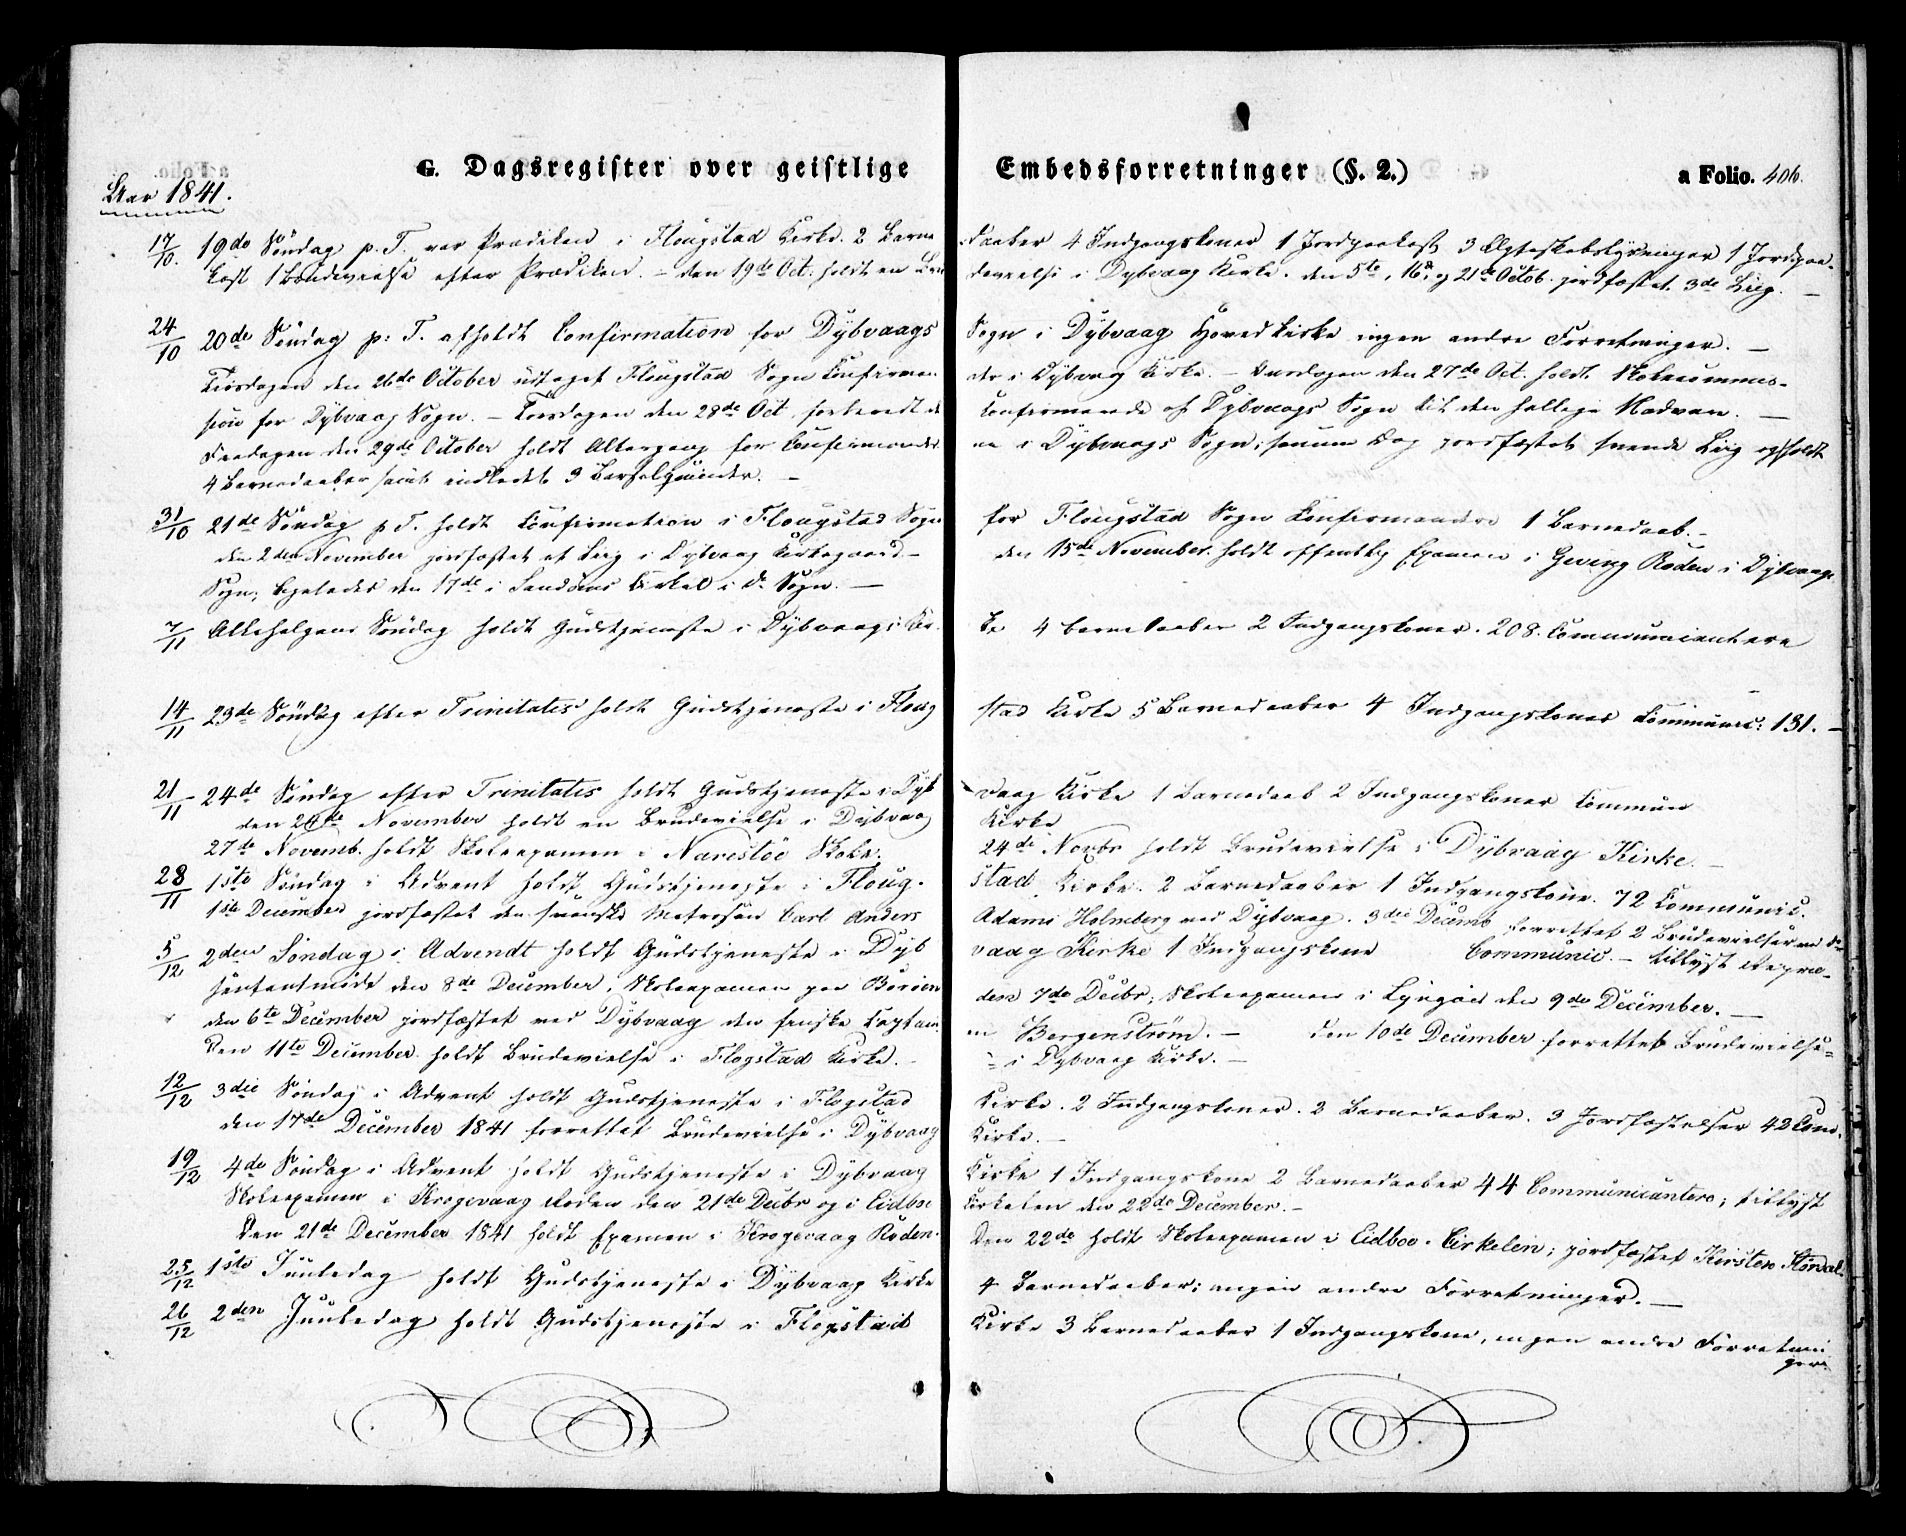 G. Dagsregister over geistlige Embedsforretninger (§. 2.) a Folio. 406.
Aar 1841.
17/10. 19de Söndag p. T. var Prædiken i Flougstad Kirke. 2 Barnedaaber 4 Indgangskoner 1 Jordpaakast 3 Ægteskabslysninger 1 Jordpaa-
kast 1 Brudevielse efter Prædiken. – den 19de Oct. holdt en Brudevielse i Dybvaag Kirke. den 5te, 16de og 21de Octob. jordfæstet 3de Liig. –
24/10 20de Söndag p: T. afholdt Confirmation for Dÿbvaags Sogn i Dÿbvaag Hovedkirke ingen andre Forretninger. –
Tirsdagen den 26de October udtaget Flougstad Sogn Confirmander i Dÿbvaag Kirke. – Onsdagen den 27de Oct. holdt Skolecommis-
sion for Dÿbvaag Sogn. – Torsdagen den 28de Oct. forberedt de Confirmerede af Dÿbvaags Sogn til den hellige Nadvere. –
Fredagen den 29de October holdt Altergang for Confirmanderne i Dÿbvaags Sogn; samme Dag jordfæstet tvende Liig og holdt
4 Barnedaaber samt indledet 3 Barselqvinder. –
31/10 21de Söndag p T. holdt Confirmation i Flougstad Sogn for Flougstad Sogn Confirmander 1 Barnedaab. –
den 2den November jordfæstet et Liig i Dÿbvaag Kirkegaard – den 15de November holdt offentlig Examen i Geving Roden i Dÿbvaags
Sogn; ligeledes den 17de i Sandöens Cirkel i do Sogn. –
7/11 Allehelgens Söndag holdt Gudstjeneste i Dÿbvaag Kirke 4 Barnedaaber 2 Indgangskoner. 208. Communicantere
14/11 23de Söndag efter Trinitatis holdt Gudstjeneste i Flougstad Kirke 5 Barnedaaber 4 Indgangskoner Communic: 131. –
21/11 24de Söndag efter Trinitatis holdt Gudstjeneste i Dÿbvaag Kirke 1 Barnedaab 2 Indgangskoner Commun
den November holdt en Brudevielse i Dÿbvaag Kirke
27de Novemb. holdt Skoleexamen i Narestöe Skole. 24de Novbr holdt Brudevielse i Dÿbvaag Kirke. –
28/11 1ste Söndag i Advent holdt Gudstjeneste i Flougstad Kirke. 2 Barnedaaber 1 Indgangskone. 72 Communic.
1ste December jordfæstet den svenske Matrosen Carl Anders Adami Holmberg ved Dÿbvaag. 3die Decemb forrettet 2 Brudevielser
5/12 2den Söndag i Advendt holdt Gudstjeneste i Dÿbvaag Kirke 1 Indgangskone Communic. – tillyst Repræ-
sentantmöde den 8de December, Skoleexamen paa Boröen den 7de Decbr, Skoleexamen i Lyngöer den 9de December. –
den 6te December jordfæstet ved Dÿbvaag den finske Captain Bergenström. – Den 10de December forrettet Brudevielse
Den 11te December holdt Brudevielse i Flogstad Kirke. – i Dÿbvaag Kirke. –
12/12 3die Söndag i Advent holdt Gudstjeneste i Flogstad Kirke. 2 Indgangskoner. 2 Barnedaaber. 3 Jordfæstelser 42 Com.
den 17de December 1841 forrettet Brudevielse i Dÿbvaag Kirke. –
19/12 4de Söndag i Advent holdt Gudstjeneste i Dÿbvaag Kirke 1 Indgangskone 2 Barnedaaber 44 Communicantere; tillyst
Skoleexamen i Krogevaag Roden den 21de Decbr og i Eidboe Cirkelen den 22de December. –
Den 21de December 1841 holdt Examen i Krogevaag Roden. Den 22de holdt Skoleexamen i Eidboe Cirkelen; jordfæstet Kirsten
25/12 1ste Juuledag holdt Gudstjeneste i Dÿbvaag Kirke 4 Barnedaaber; ingen andre Forretninger. –
26/12 2den Juuledag holdt Gudstjeneste i Flogstad Kirke 3 Barnedaaber 1 Indgangskone, ingen andre Forretnin
ger.